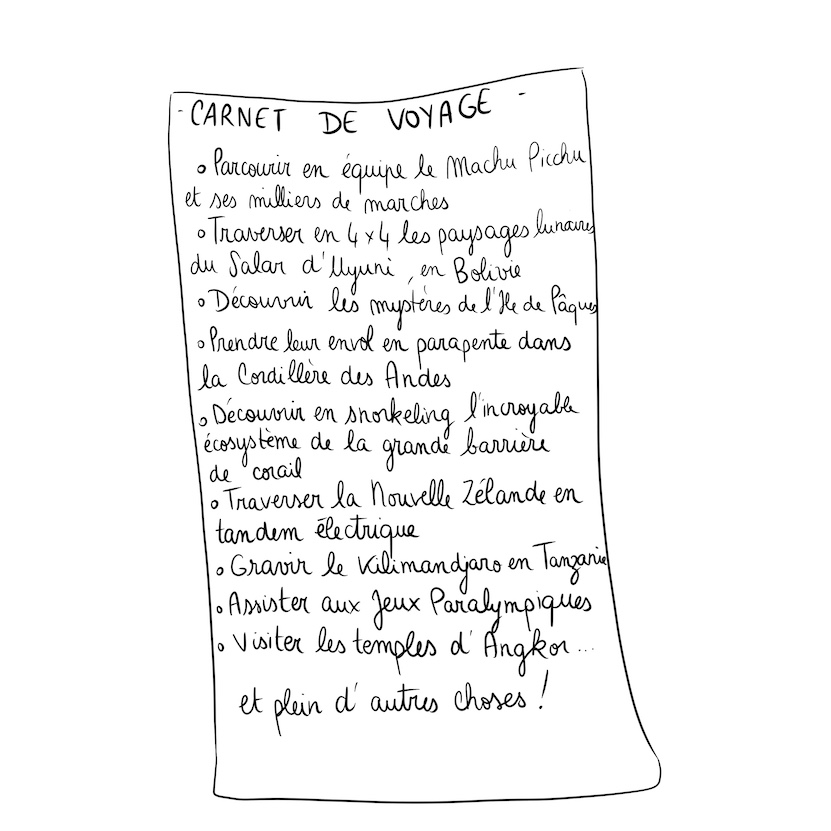 - CARNET DE VOYAGE -
• Parcourir en équipe le Machu Picchu
et ses milliers de marches
• Traverser en 4x4 les paysages lunaires
du Salar d'Uyuni, en Bolivie
• Découvrir les mystères de l'Ile de Pâques
• Prendre leur envol en parapente dans
la Cordillère des Andes
• Découvrir en snorkeling l'incroyable
écosystème de la grande barrière
de corail
• Traverser la Nouvelle Zélande en
tandem électrique
• Gravir le Kilimandjaro en Tanzanie
• Assister aux Jeux Paralympiques
• Visiter les temples d'Angkor...
et plein d'autres choses !